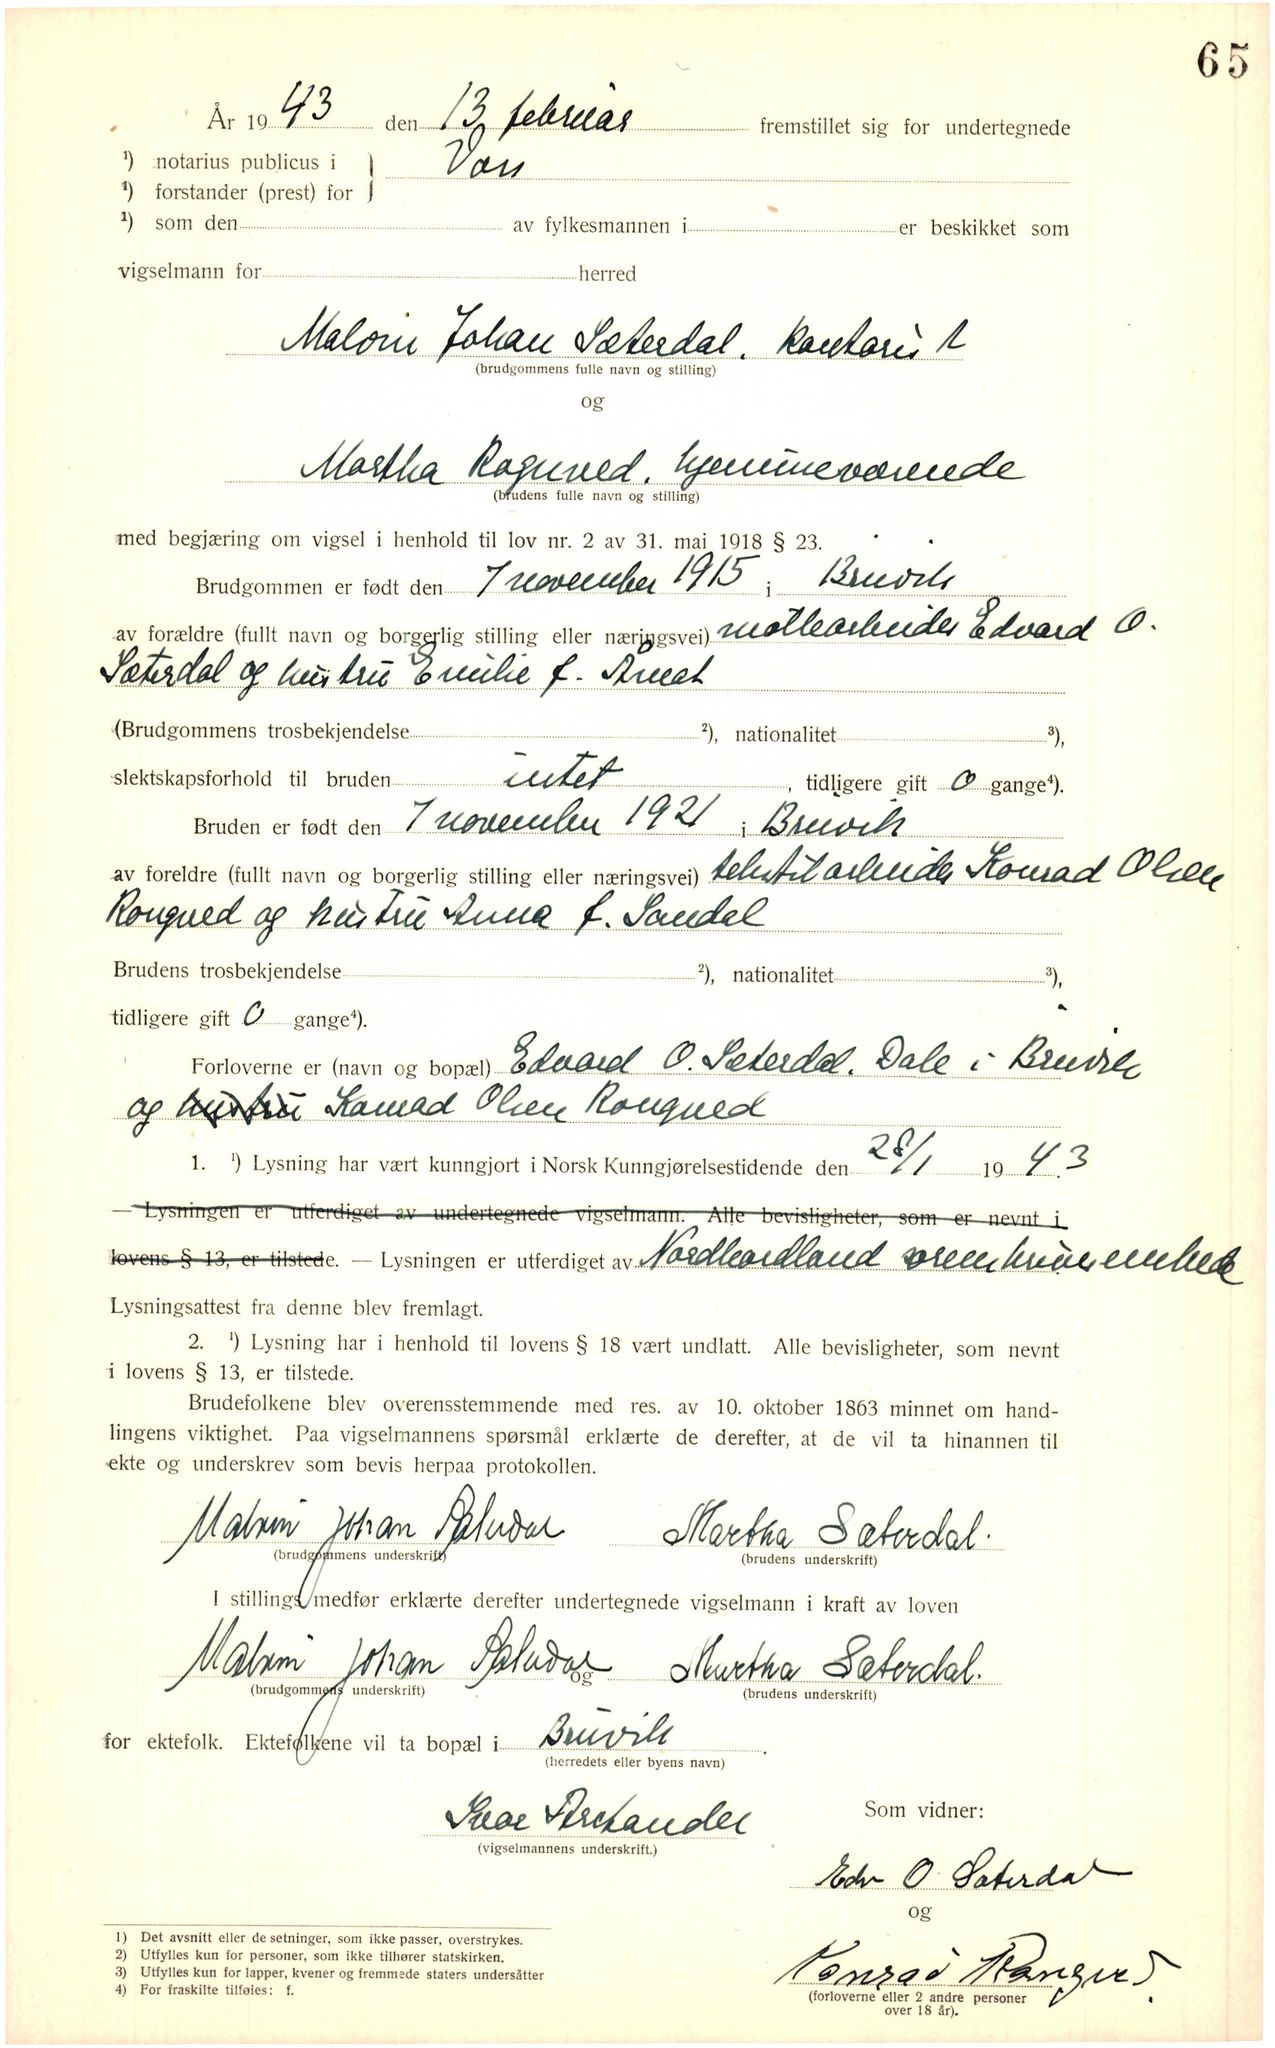 65
År 1943 den 13 februar fremstillet sig for undertegnede
1) notarius publicus i } Voss
1) forstander (prest) for }
1) som den av fylkesmannen i er beskikket som
vigselmann for herred
Malvin Johan Sæterdal. kontorist
(brudgommens fulle navn og stilling)
og
Martha Rognved. hjemmeværende
(brudens fulle navn og stilling)
med begjæring om vigsel i henhold til lov nr. 2 av 31. mai 1918 § 23.
Brudgommen er født den 7 november 1915 i Bruvik
av forældre (fullt navn og borgerlig stilling eller næringsvei) Edvard O.
Sæterdal og hustru Emilie f.
(Brudgommens trosbekjendelse 2), nationalitet 3),
slektskapsforhold til bruden intet, tidligere gift 0 gange4).
Bruden er født den 7 november 1921 i Bruvik
av foreldre (fullt navn og borgerlig stilling eller næringsvei) tekstilarbeider Konrad Olsen
Rongved og hustru Anna f. Sandal
Brudens trosbekjendelse 2), nationalitet 3),
tidligere gift 0 gange4).
Forloverne er (navn og bopæl) Edvard O. Sæterdal. Dale i Bruvik
og hustru Konrad Olsen Rongved
1. 1) Lysning har vært kunngjort i Norsk Kunngjørelsestidende den 28/1 1943
— Lysningen er utferdiget av undertegnede vigselmann. Alle bevisligheter, som er nevnt i
lovens § 13, er tilstede. — Lysningen er utferdiget av Nordhordland sorenskriverembede
Lysningsattest fra denne blev fremlagt.
2. 1) Lysning har i henhold til lovens § 18 vært undlatt. Alle bevisligheter, som nevnt
i lovens § 13, er tilstede.
Brudefolkene blev overensstemmende med res. av 10. oktober 1863 minnet om hand-
lingens viktighet. Paa vigselmannens spørsmål erklærte de derefter, at de vil ta hinannen til
ekte og underskrev som bevis herpaa protokollen.
Malvin Johan Sæterdal Martha Sæterdal.
(brudgommens underskrift) (brudens underskrift)
I stillings medfør erklærte derefter undertegnede vigselmann i kraft av loven
Malvin Johan Sæterdal og Martha Sæterdal.
(brudgommens underskrift) (brudens underskrift)
for ektefolk. Ektefolkene vil ta bopæl i Bruvik.
(herredets eller byens navn)
Ivar Astander
(vigselmannens underskrift.)
Som vidner:
Edv O Sæterdal
og
Konrad Rongved.
(forloverne eller 2 andre personer
over 18 år).
1) Det avsnitt eller de setninger, som ikke passer, overstrykes.
2) Utfylles kun for personer, som ikke tilhører statskirken.
3) Utfylles kun for lapper, kvener og fremmede staters undersåtter
4) For fraskilte tilføies: f.